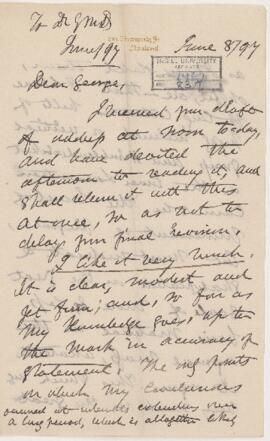 To Dr GMD
June/97
University St
Montreal
June 8/97
McGILL UNIVERSITY
ARCHIVES
Dear George,
I received your draft
of address at noon today,
and have devoted the
afternoon to reading it, and
shall return it with this
at once, so as not to
delay your final revision.
I like it very much.
It is clear, modest and
yet firm; and, so far as
my knowledge goes, up to
the mark in accuracy of
statement. The only points
on which my conclusions
occurred at intervals extending over
a long period, which is altogether likely